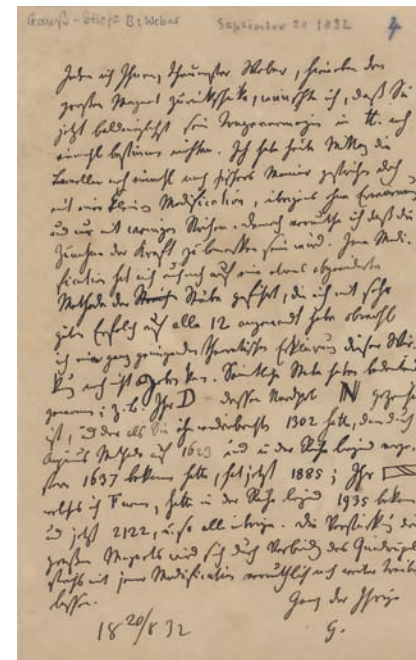 Gauß-Stift Bs Weber September 20 1832 4
Indem ich Ihnen, theuerster Weber, hierneben den
großen Magnet zurückschicke, wünschte ich, daß Sie
jetzt baldmöglichst sein Tragvermögen in ℔. noch
einmahl bestimmen möchten. Ich habe heute Mittag die
Lamellen noch einmahl nach Manier gestrichen doch
mit einer kleinen Modification, übrigens ohne
und nur mit wenigen Strichen. Danach vermuthe ich daß die
Zunahme der Kraft zu bemerken sein wird. Jene Modi-
fication hat mich auf eine etwas abgeänderte
Methode der Stäbe geführt, die ich mit sehr
gutem Erfolg auf alle 12 angewandt habe obwohl
ich eine ganz genügende theoretische Erklärung dieser Wir-
kung noch nicht geben kann. Sämtliche Stäbe haben bedeutend
gewonnen; z.B. Ihr D dessen Nordpol N gezeichnet
ist, und der als Sie ihn 1302 hatte, dann durch
Methode auf 1623 und in der Ruhe liegend
1637 bekommen hatte, hat jetzt 1885; Ihr
welches ich nenne, hatte in der Ruhe liegend 1935 bekommen
und jetzt 2122, u. so alle übrige. Die Verstärkung des
großen Magnets wird sich durch Verbindung des
mit jener Modification vermuthlich noch weiter treiben
lassen.
Ganz der Ihrige
18 20/8 32 G.